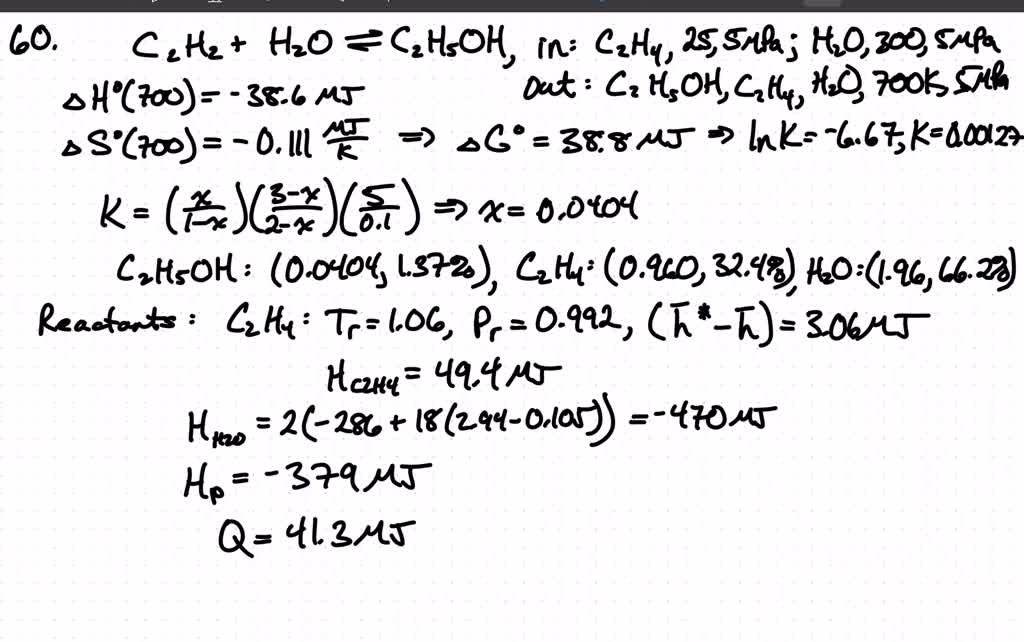 60. C₂H₂ + H₂O ⇌ C₂H₅OH, in: C₂H₄, 25, 5MPa; H₂O, 300, 5MPa
ΔH°(700) = -38.6 MJ out: C₂H₅OH, C₂H₄, H₂O, 700K, 5MPa
ΔS°(700) = -0.111 MJ/K ⇒ ΔG° = 38.8 MJ ⇒ lnK = -6.67, K = 0.00127
K = (x/1-x)(3-x/2-x)(5/0.1) ⇒ x = 0.0404
C₂H₅OH: (0.0404, 1.37%), C₂H₄: (0.960, 32.4%), H₂O: (1.96, 66.2%)
Reactants: C₂H₄: Tr = 1.06, Pr = 0.992, (h̄* - h̄) = 3.06 MJ
H_C2H4 = 49.4 MJ
H_H2O = 2(-286 + 18(2.94 - 0.105)) = -470 MJ
Hp = -379 MJ
Q = 41.3 MJ